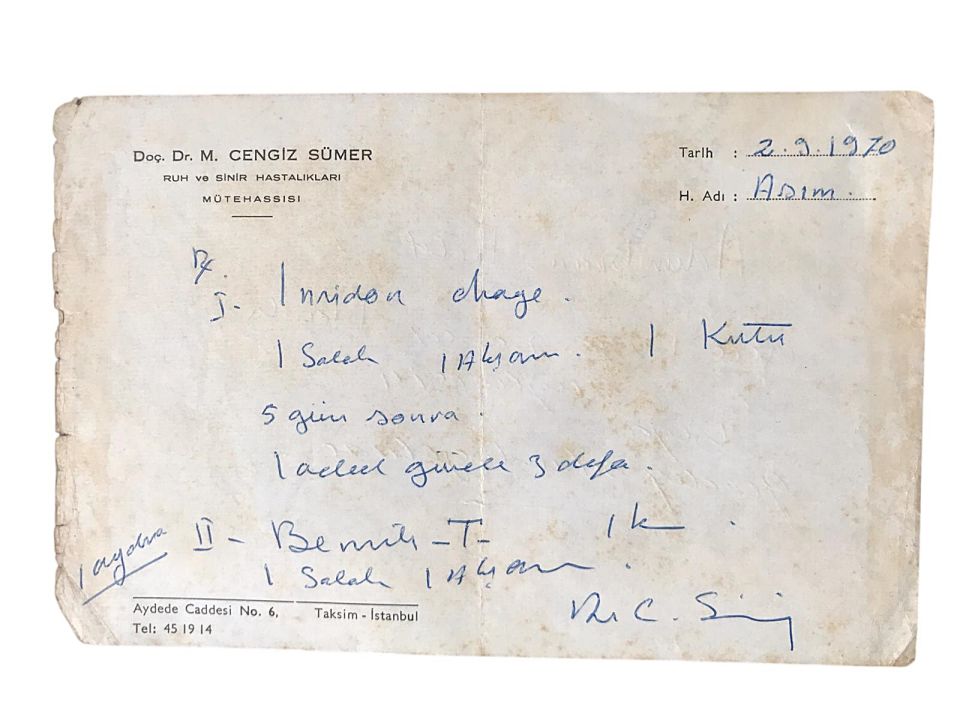 Doç. Dr. M. CENGİZ SÜMER
RUH ve SİNİR HASTALIKLARI
MÜTEHASSISI
Tarih : 2.9.1970
H. Adı : Asım.
I- Insidon drage.
1 Sabah 1 Akşam. 1 Kutu
5 gün sonra.
1 aded günde 3 defa.
II- -T- 1 k
1 Sabah 1 Akşam.
Dr C.
Aydede Caddesi No. 6, Taksim - İstanbul
Tel: 45 19 14